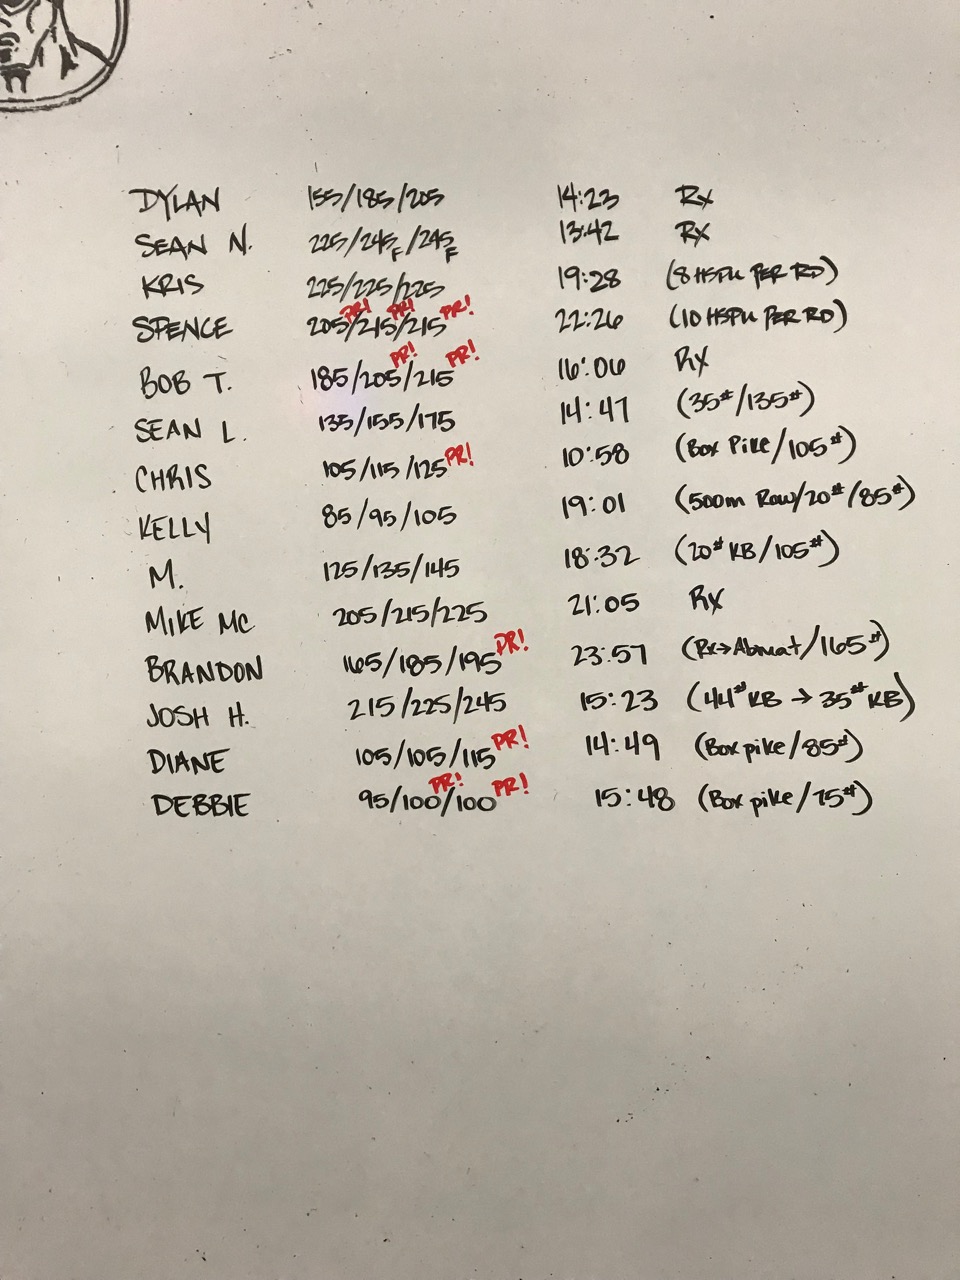 DYLAN 155/185/205 14:23 Rx
SEAN N. 225/245F/245F 13:42 Rx
KRIS 225/225/225 19:28 (8 HSPU PER RD)
SPENCE 205PR!/215PR!/215PR! 22:26 (10 HSPU PER RD)
BOB T. 185/205PR!/215PR! 16:06 Rx
SEAN L. 135/155/175 14:47 (35#/135#)
CHRIS 105/115/125PR! 10:58 (Box Pike/105#)
KELLY 85/95/105 19:01 (500m Row/20#/85#)
M. 125/135/145 18:32 (20# KB/105#)
MIKE MC 205/215/225 21:05 Rx
BRANDON 165/185/195PR! 23:57 (Rx→Abmat/165#)
JOSH H. 215/225/245 15:23 (44# KB → 35# KB)
DIANE 105/105/115PR! 14:49 (Box pike/85#)
DEBBIE 95/100PR!/100PR! 15:48 (Box pike/75#)